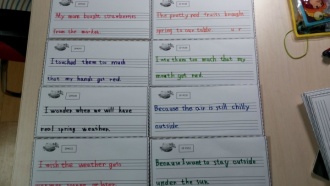 My mom bought strawberries
from the market.
The pretty red fruits brought
spring to our table.
I touched them so much
that my hands got red.
I ate them so much that my
mouth got red.
I wonder when we will have
real spring weather.
Because the air is still chilly
outside.
I wish the weather gets
Because I want to stay outside
under the sun.